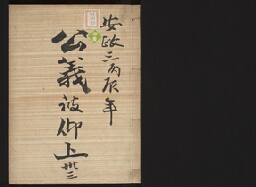 安政三丙辰年
公義被仰上
卅三